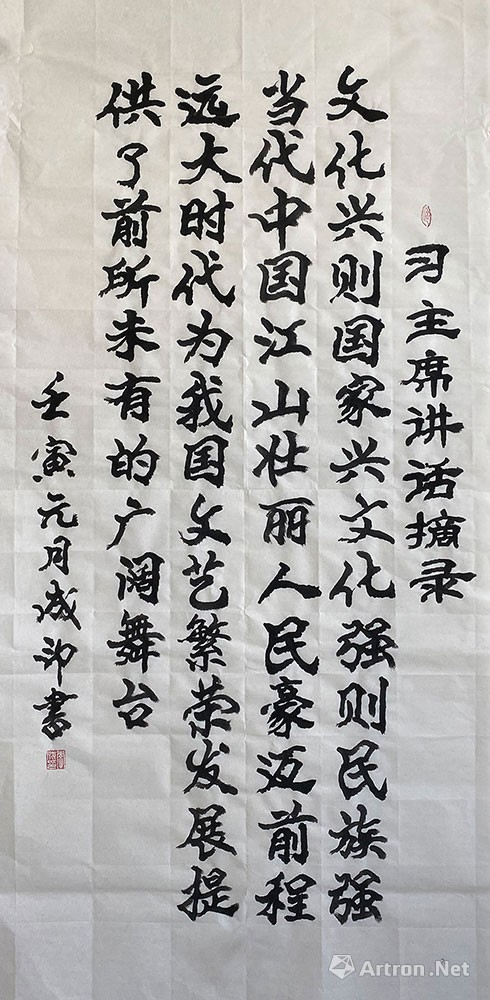 习主席讲话摘录
文化兴则国家兴文化强则民族强
当代中国江山壮丽人民豪迈前程
远大时代为我国文艺繁荣发展提
供了前所未有的广阔舞台
壬寅元月成印书
Artron.Net